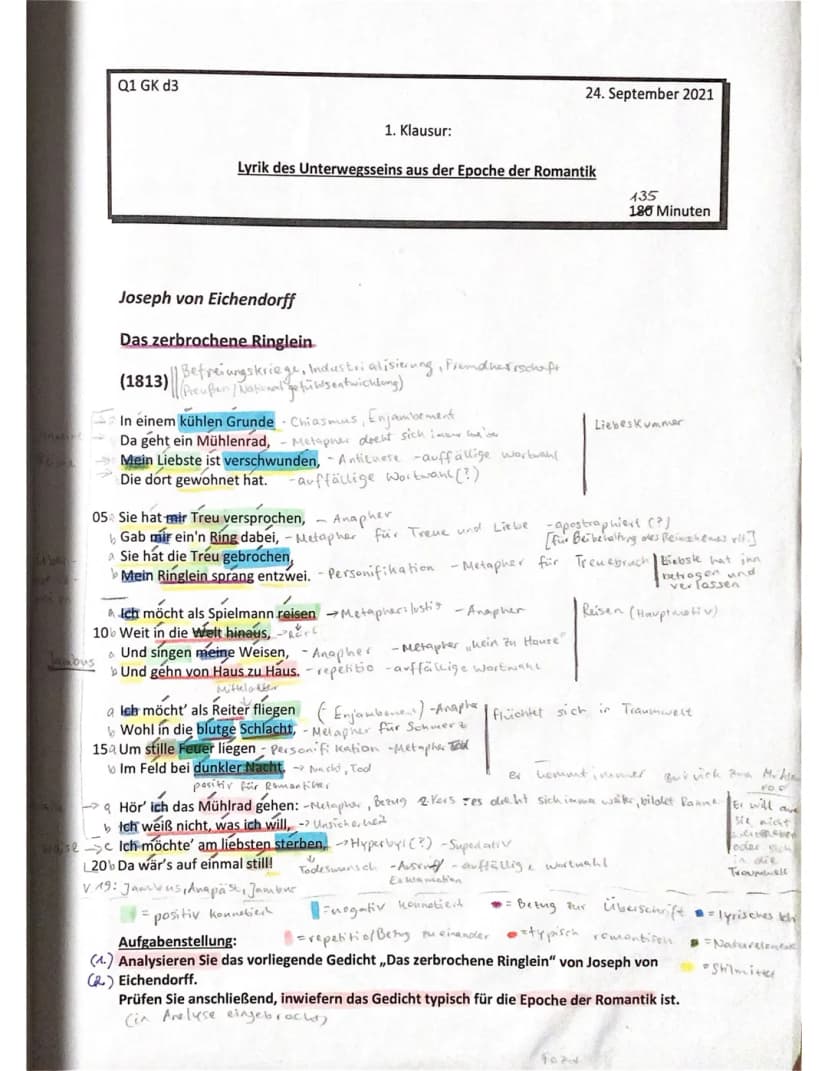 Q1 GK d3
24. September 2021
1. Klausur:
Lyrik des Unterwegsseins aus der Epoche der Romantik
135
180 Minuten
Joseph von Eichendorff
Das zerbrochene Ringlein
Befreiungskriege, Industrialisierung, Fremdherrschaft
(1813) (Preußen/Nationalgefühlsentwicklung)
In einem kühlen Grunde - Chiasmus, Enjambement
Liebeskummer
Da geht ein Mühlenrad, - Metapher dreht sich immer weiter
Mein Liebste ist verschwunden, - Antithese - auffällige Wortwahl
Die dort gewohnet hat. - auffällige Wortwahl (?)
05 a Sie hat mir Treu versprochen, - Anapher
b Gab mir ein'n Ring dabei, - Metapher für Treue und Liebe - apostrophiert (?)
[für Beibehaltung des Reimschemas vlt.]
a Sie hat die Treu gebrochen,
b Mein Ringlein sprang entzwei. - Personifikation - Metapher für Treuebruch
Liebste hat ihn betrogen und verlassen
a Ich möcht als Spielmann reisen → Metapher: lustig - Anapher
Reisen (Hauptmotiv)
10 b Weit in die Welt hinaus,
a Und singen meine Weisen, - Anapher - Metapher "kein Zu Hause"
b Und gehn von Haus zu Haus. - repetitio - auffällige Wortwahl
Mittelalter
a Ich möcht' als Reiter fliegen (- Enjambement) - Anapher
flüchtet sich in Traumwelt
b Wohl in die blutge Schlacht, - Metapher für Schmerz
15 a Um stille Feuer liegen - Personifikation - Metapher Tod
b Im Feld bei dunkler Nacht. → Nacht, Tod
er kommt immer zurück zum
positiv für Romantiker
→ a Hör' ich das Mühlrad gehen: - Metapher, Bezug 2. Vers → es dreht sich immer weiter, bildet Rahmen
b Ich weiß nicht, was ich will, → Unsicherheit
→ c Ich möchte' am liebsten sterben, → Hyperbel (?) - Superlativ
Er will
sie nicht
oder sich
in die
Traumwelt
20 b Da wär's auf einmal still!
Todeswunsch - Ausruf - auffällige Wortwahl
Exklamation
V 19: Jambus, Anapäst, Jambus
Jambus
= positiv konnotiert
= negativ konnotiert
= Bezug zur Überschrift
= lyrisches Ich
= repetitio/Bezug zueinander
= typisch romantisch
= Naturelemente
= Stilmittel
Aufgabenstellung:
(1.) Analysieren Sie das vorliegende Gedicht „Das zerbrochene Ringlein" von Joseph von
(2.) Eichendorff.
Prüfen Sie anschließend, inwiefern das Gedicht typisch für die Epoche der Romantik ist.
(in Analyse eingebracht)